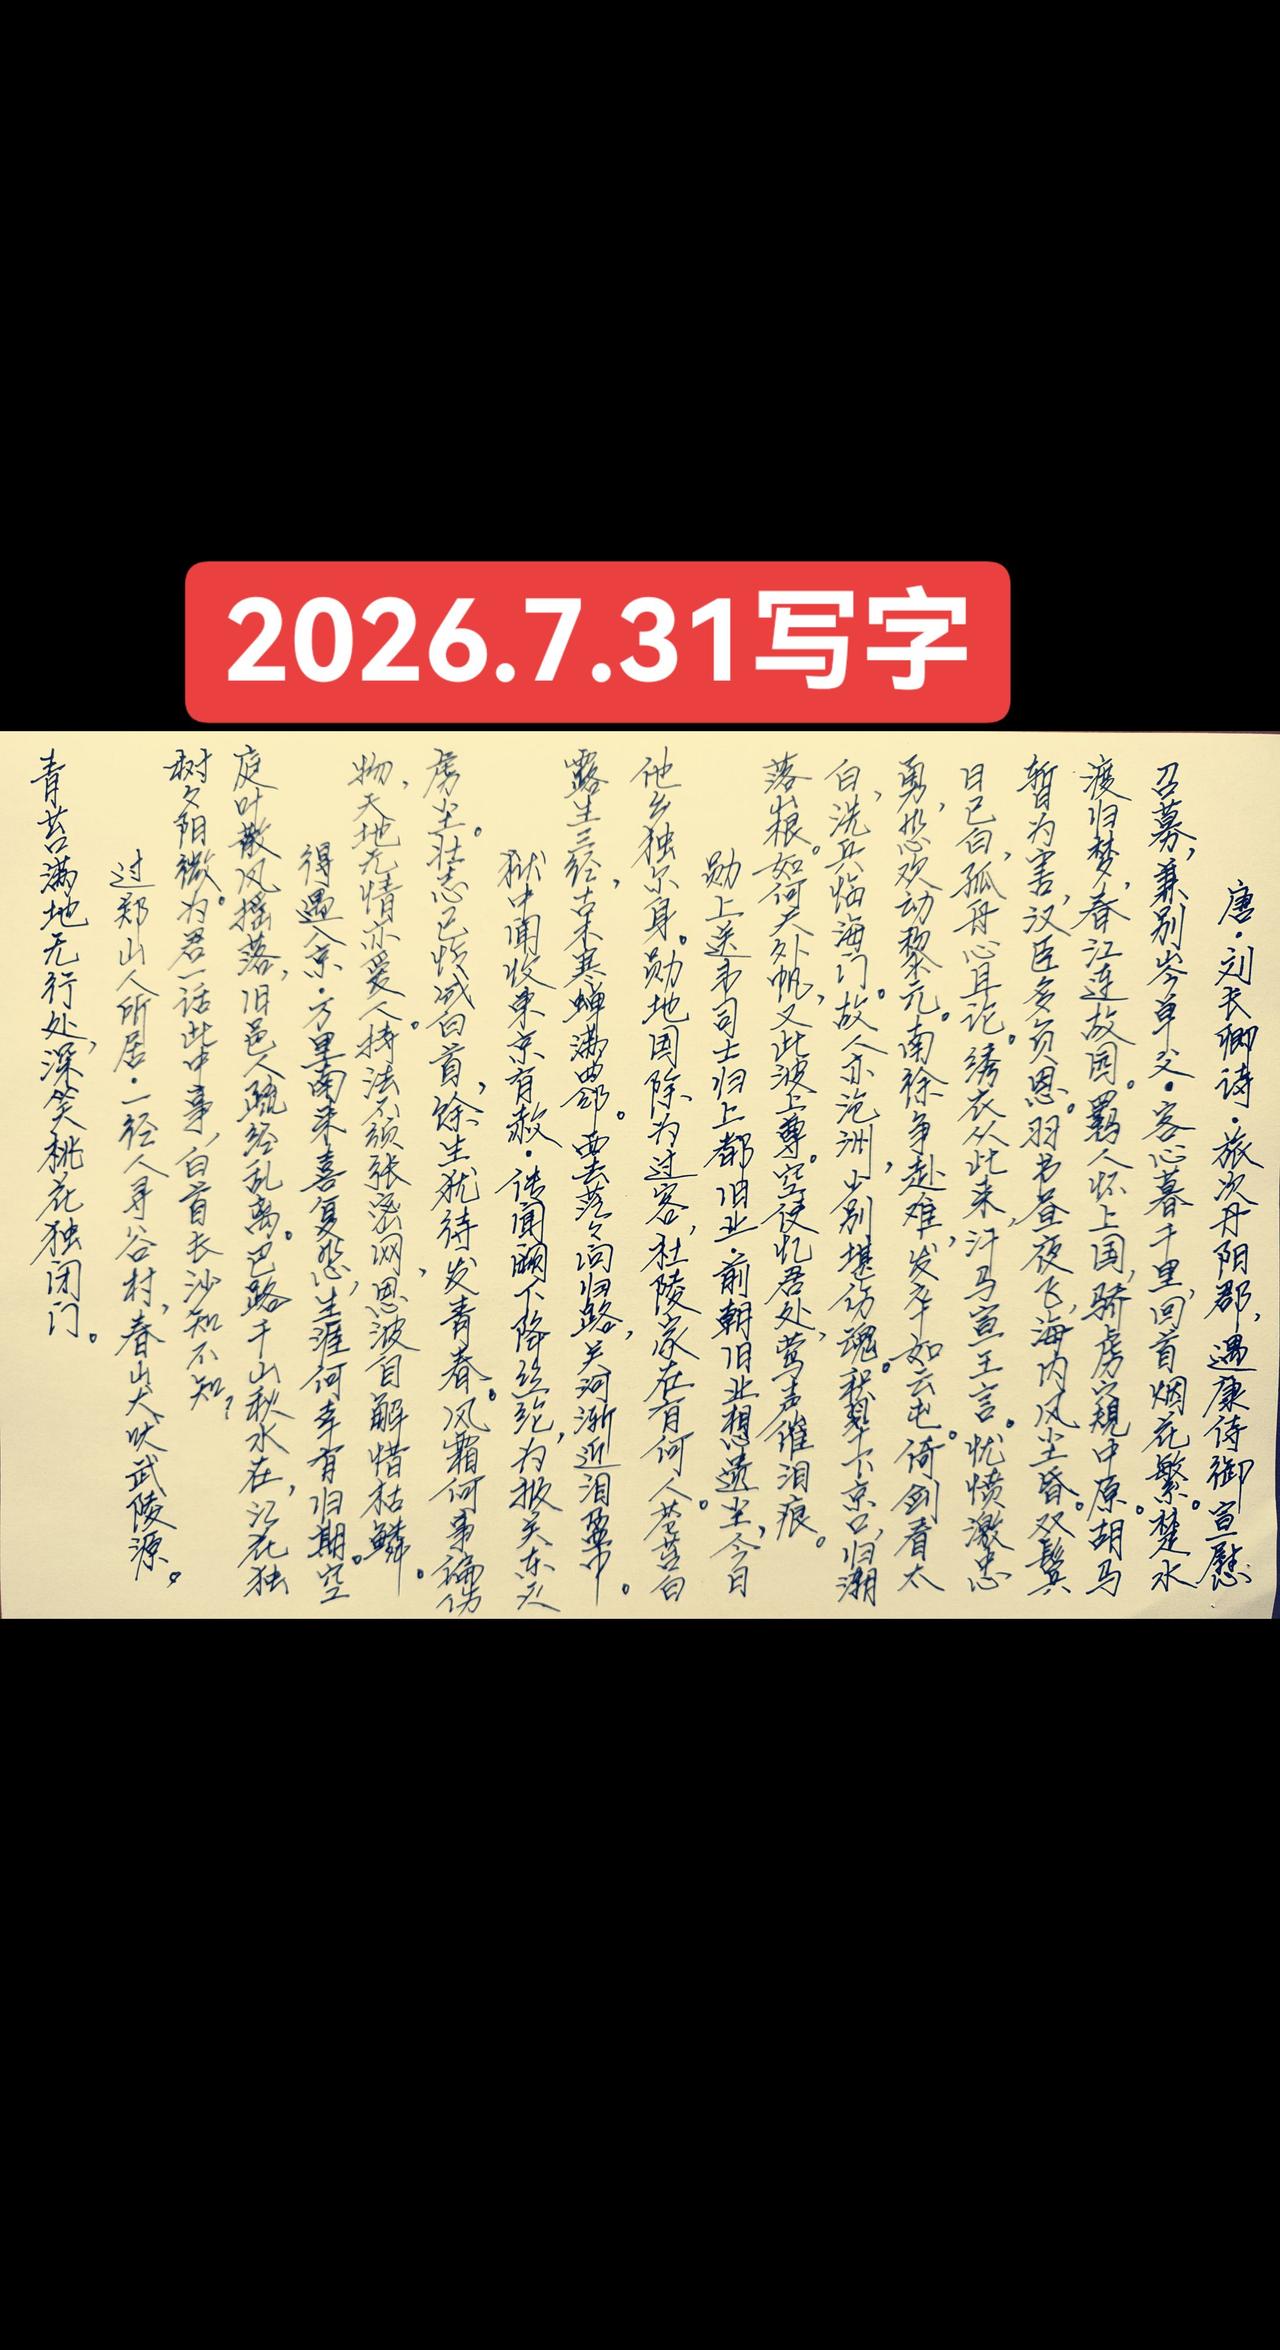 2026.7.31写字
唐·刘长卿诗·旅次丹阳郡，遇康侍御宣慰
召募，兼别岑单父·客心暮千里，回首烟花繁。楚水
渡归梦，春江连故园。羁人怀上国，骄虏窥中原。胡马
暂为害，汉臣多负恩。羽书昼夜飞，海内风尘昏。双鬓
日已白，孤舟心且论。绣衣从此来，汗马宣王言。忧愤激忠
勇，悲欢动黎元。南徐争赴难，发卒如云屯。倚剑看太
白，洗兵临海门。故人亦沧洲，少别堪伤魂。积翠下京口，归潮
落山根。如何天外帆，又此波上尊。空使忆君处，莺声催泪痕。
勋上送韦司士归上都旧业·前朝旧业想遗尘，今日
他乡独尔身。勋地国除为过客，杜陵家在有何人。苍苔白
露生三径，古木寒蝉满四邻。西去茫茫问归路，关河渐近泪盈巾。
狱中闻收东京有赦·传闻阙下降丝纶，为报关东灭
虏尘。壮志已怜成白首，馀生犹待发青春。风霜何事偏伤
物，天地无情亦爱人。持法不须张密网，恩波自解惜枯鳞。
得遇入京·万里南来喜复悲，生涯何幸有归期。空
庭叶散风摇落，旧邑人疏经乱离。巴路千山秋水在，江花独
树夕阳微。为君一话此中事，白首长沙知不知？
过郑山人所居·一径人寻谷村，春山犬吠武陵源。
青苔满地无行处，深笑桃花独闭门。